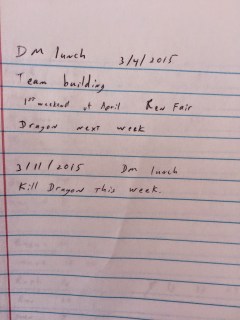 DM lunch 3/4/2015
Team building
1st weekend of April Ren Fair
Dragon next week
3/11/2015 Dm lunch
Kill Dragon This week.